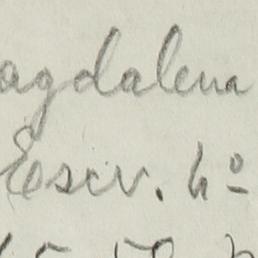 agdalena
Escr. hº